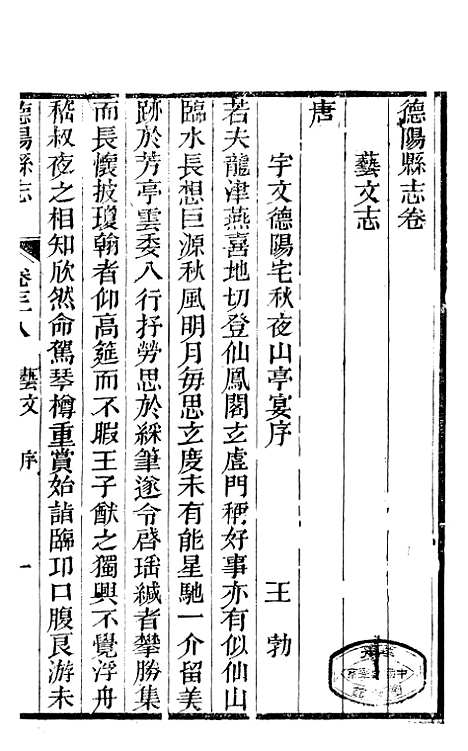 德陽縣志卷
藝文志
唐
宇文德陽宅秋夜山亭宴序　王勃
若夫龍津燕喜地切登仙鳳閣玄虛門稱好事亦有似仙山
臨水長想巨源秋風明月每思玄度未有能星馳一介留美
跡於芳亭雲委八行抒勞思於綵筆遂令啓瑶緘者攀勝集
而長懷披瓊翰者仰高筵而不暇王子猷之獨興不覺浮舟
嵇叔夜之相知欣然命駕琴樽重賞始詣臨邛口腹良游未
德陽縣志　卷三八　藝文　序　一